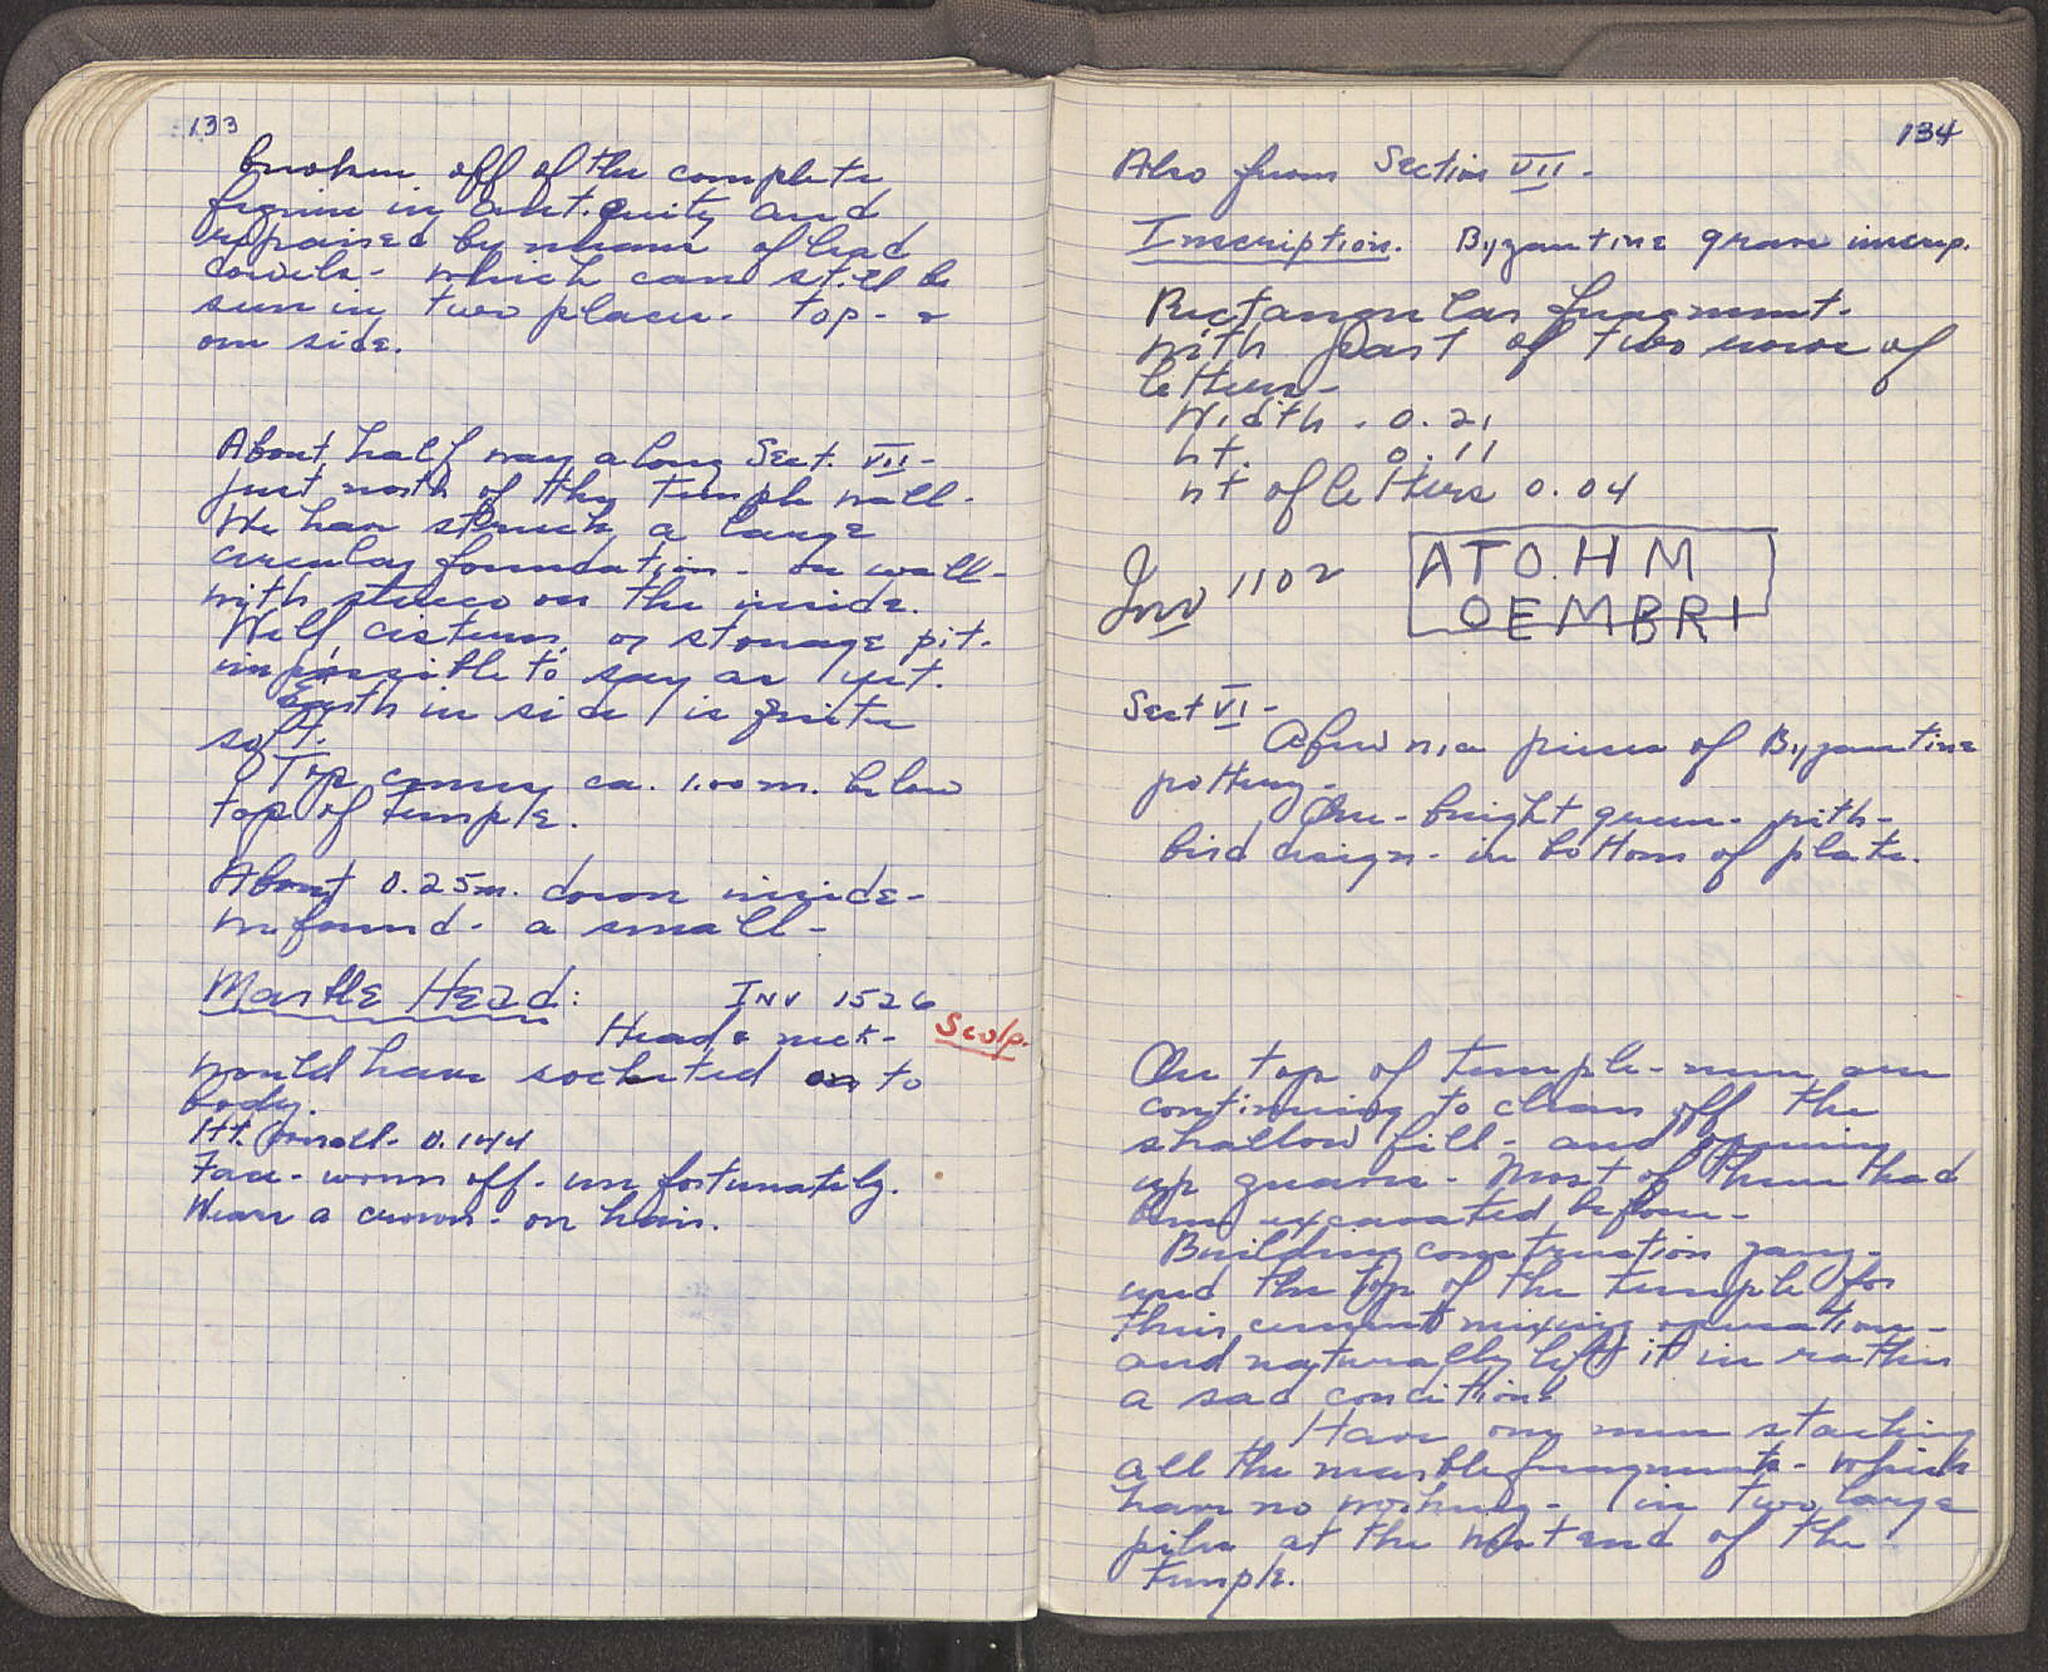 133
broken off of the complete
figure in antiquity and
repaired by means of lead
dowels - which can still be
seen in two places. top - &
one side.
About half way along Sect. VII -
just north of the temple wall.
We have struck a large
circular foundation - or wall -
with stucco on the inside.
Well, cistern, or storage pit.
impossible to say as yet.
Earth in side is quite
soft.
Top comes ca. 1.00 m. below
top of temple.
About 0.25m. down inside -
we found - a small -
Marble Head: INV 1526
Head & neck - Sculp.
would have socketed on to
body.
Ht. overall - 0.144
Face - worn off - unfortunately.
Wears a crown - on hair.
134
Also from Section VII -
Inscription. Byzantine grave inscrip.
Rectangular fragment.
with part of two rows of
letters -
Width . 0.21
ht. 0.11
ht of letters 0.04
Inv 1102
ATO.HM
OEMBRI
Sect VI -
A few nice pieces of Byzantine
pottery -
One - bright green - with -
bird design - in bottom of plate.
On top of temple - men are
continuing to clean off the
shallow fill - and opening
up graves - Most of them had
been excavated before -
Building construction gang -
used the top of the temple for
their cement mixing operation -
and naturally left it in rather
a sad condition!
Have one man stacking
all the marble fragments - which
have no working - in two large
piles at the west end of the
temple.